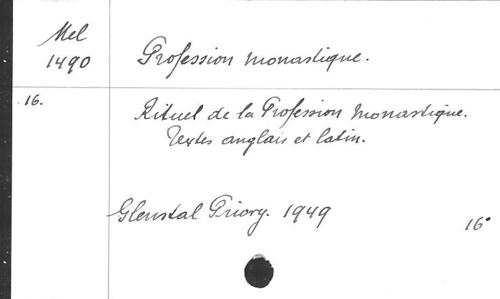 Mel
1490
Profession monastique.
16.
Rituel de la Profession Monastique.
Textes anglais et latin.
Glenstal Priory. 1949
16°